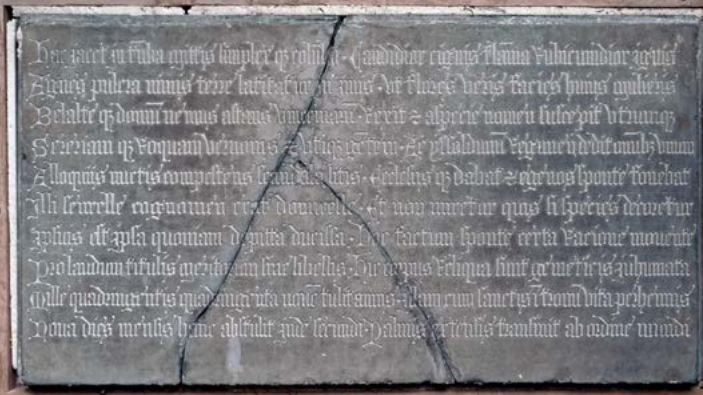 Hac jacet in tumba mitis simplex qz columba · Candidior cignis flamma rubicundior ignis
Agnes pulcra nimis terre latitatur in imis · Ut flores veris facies huius mulieris
Belalte qz domum nemus astans · rexit z a specie nomen suscepit utrumqz
qz Roquam Vernonis z gentem · Ac regimen dedit omnibz unum
Alloquiis mitis compestens · Ecclesiis qz dabat z egenos sponte fovebat
Illi seurelle cognomen erat domicelle · Et non miretur quis si species decoretur
Ipsius est ipsa quoniam depicta ducissa · Hoc factum sponte certa racione movente
Pro laudum titulis meritorum sive libellis · Hic corpus reliqua sunt gemeticis inhumata
Mille quadringentis quadraginta novem tulit annis · Illam cum sanctis vita perhennis
Nona dies mensis hanc abstulit inde secundi · Palmis extensis transivit ab ordine mundi